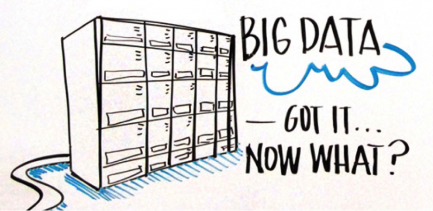 BIG DATA
— GOT IT...
NOW WHAT?